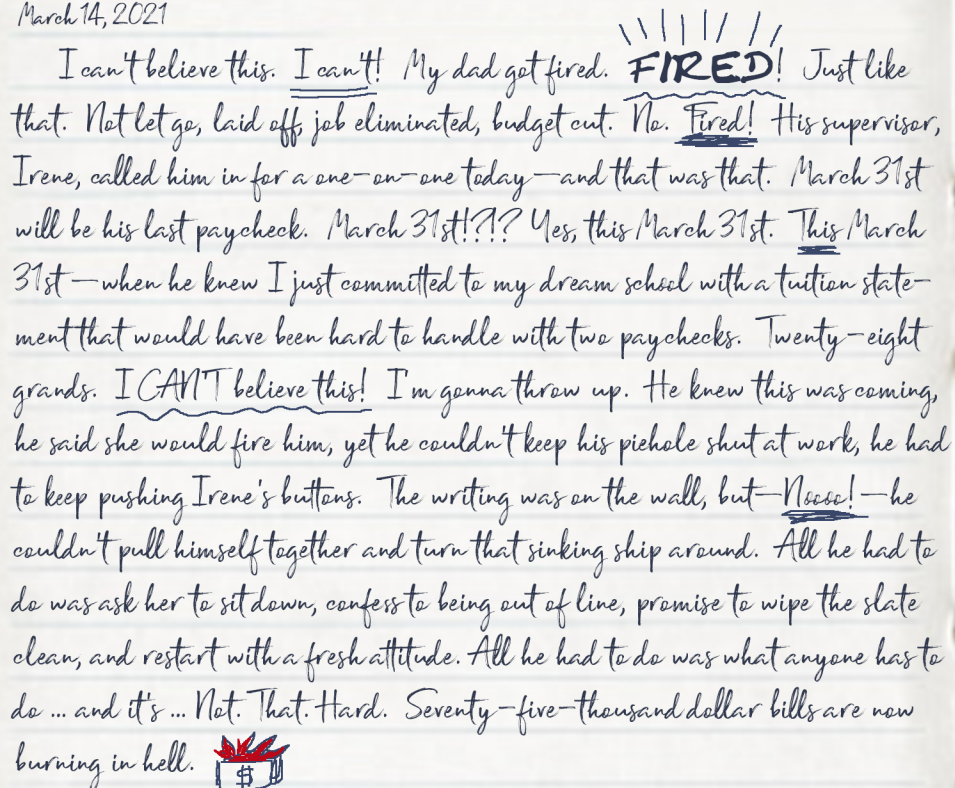 March 14, 2021
I can't believe this. I can't! My dad got fired. FIRED! Just like
that. Not let go, laid off, job eliminated, budget cut. No. Fired! His supervisor,
Irene, called him in for a one-on-one today—and that was that. March 31st
will be his last paycheck. March 31st!?!? Yes, this March 31st. This March
31st—when he knew I just committed to my dream school with a tuition state-
ment that would have been hard to handle with two paychecks. Twenty-eight
grands. I CAN'T believe this! I'm gonna throw up. He knew this was coming,
he said she would fire him, yet he couldn't keep his piehole shut at work, he had
to keep pushing Irene's buttons. The writing was on the wall, but—Noooo!—he
couldn't pull himself together and turn that sinking ship around. All he had to
do was ask her to sit down, confess to being out of line, promise to wipe the slate
clean, and restart with a fresh attitude. All he had to do was what anyone has to
do ... and it's ... Not. That. Hard. Seventy-five-thousand dollar bills are now
burning in hell.
$